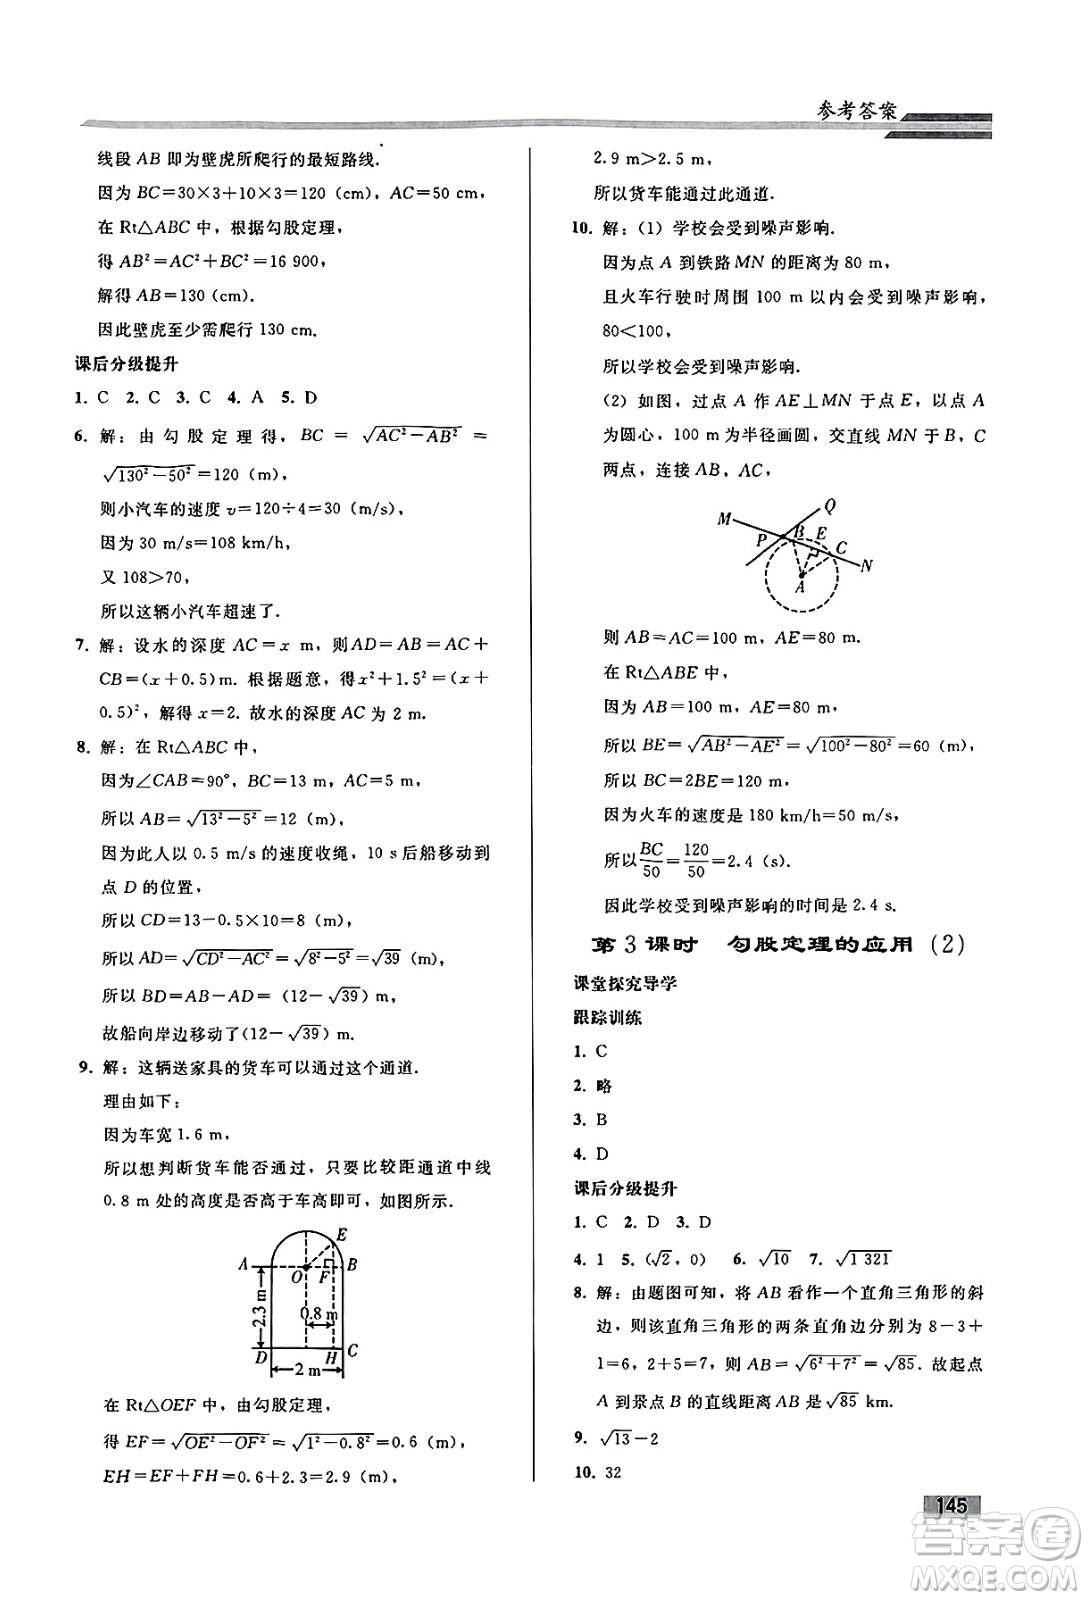 参考答案
线段 AB 即为壁虎所爬行的最短路线.
因为 BC=30×3+10×3=120 (cm), AC=50 (cm),
在 Rt△ABC 中，根据勾股定理，
得 AB²=AC²+BC²=16 900,
解得 AB=130 (cm).
因此壁虎至少需爬行 130 cm.
课后分级提升
1. C 2. C 3. C 4. A 5. D
6. 解：由勾股定理得，BC = √(AC²-AB²) =
√(130²-50²)=120 (m),
则小汽车的速度 v=120÷4=30 (m/s),
因为 30 m/s=108 km/h,
又 108>70,
所以这辆小汽车超速了.
7. 解：设水的深度 AC=x m，则AD=AB=AC+
CB=(x+0.5)m. 根据题意，得x²+1.5²=(x+
0.5)²，解得 x=2. 故水的深度 AC 为 2 m.
8. 解：在 Rt△ABC 中，
因为∠CAB=90°, BC=13 m, AC=5 m,
所以 AB=√(13²-5²)=12 (m),
因为此人以 0.5 m/s 的速度收绳，10 s后船移动到
点 D 的位置，
所以 CD=13-0.5×10=8 (m),
所以 AD=√(CD²-AC²)=√(8²-5²)=√39 (m),
所以 BD=AB-AD=(12-√39) (m),
故船向岸边移动了(12-√39) m.
9. 解：这辆送家具的货车可以通过这个通道.
理由如下：
因为车宽 1.6 m,
所以想判断货车能否通过，只要比较距通道中线
0.8 m 处的高度是否高于车高即可，如图所示.
E
A
O
F
B
2.3 m
0.8 m
D
H
C
2 m
在 Rt△OEF 中，由勾股定理，
得 EF=√(OE²-OF²)=√(1²-0.8²)=0.6 (m),
EH=EF+FH=0.6+2.3=2.9 (m),
2.9 m>2.5 m,
所以货车能通过此通道.
10. 解：(1) 学校会受到噪声影响.
因为点 A 到铁路 MN 的距离为 80 m,
且火车行驶时周围 100 m 以内会受到噪声影响，
80<100,
所以学校会受到噪声影响.
(2) 如图，过点 A 作 AE⊥MN 于点 E，以点 A
为圆心，100 m为半径画圆，交直线 MN 于 B, C
两点，连接 AB, AC,
M
Q
P
B
E
C
N
A
则 AB=AC=100 m, AE=80 m.
在 Rt△ABE 中，
因为 AB=100 m, AE=80 m,
所以 BE=√(AB²-AE²)=√(100²-80²)=60 (m),
所以 BC=2BE=120 m,
因为火车的速度是 180 km/h=50 m/s,
所以 BC/50=120/50=2.4 (s).
因此学校受到噪声影响的时间是 2.4 s.
第 3 课时 勾股定理的应用 (2)
课堂探究导学
跟踪训练
1. C
2. 略
3. B
4. D
课后分级提升
1. C 2. D 3. D
4. 1 5. (√2, 0) 6. √10 7. √1 321
8. 解：由题图可知，将 AB 看作一个直角三角形的斜
边，则该直角三角形的两条直角边分别为 8-3+
1=6, 2+5=7, 则 AB=√(6²+7²)=√85. 故起点
A 到景点 B 的直线距离 AB 是 √85 km.
9. √13-2
10. 32
145
答案卷
MXQE.COM